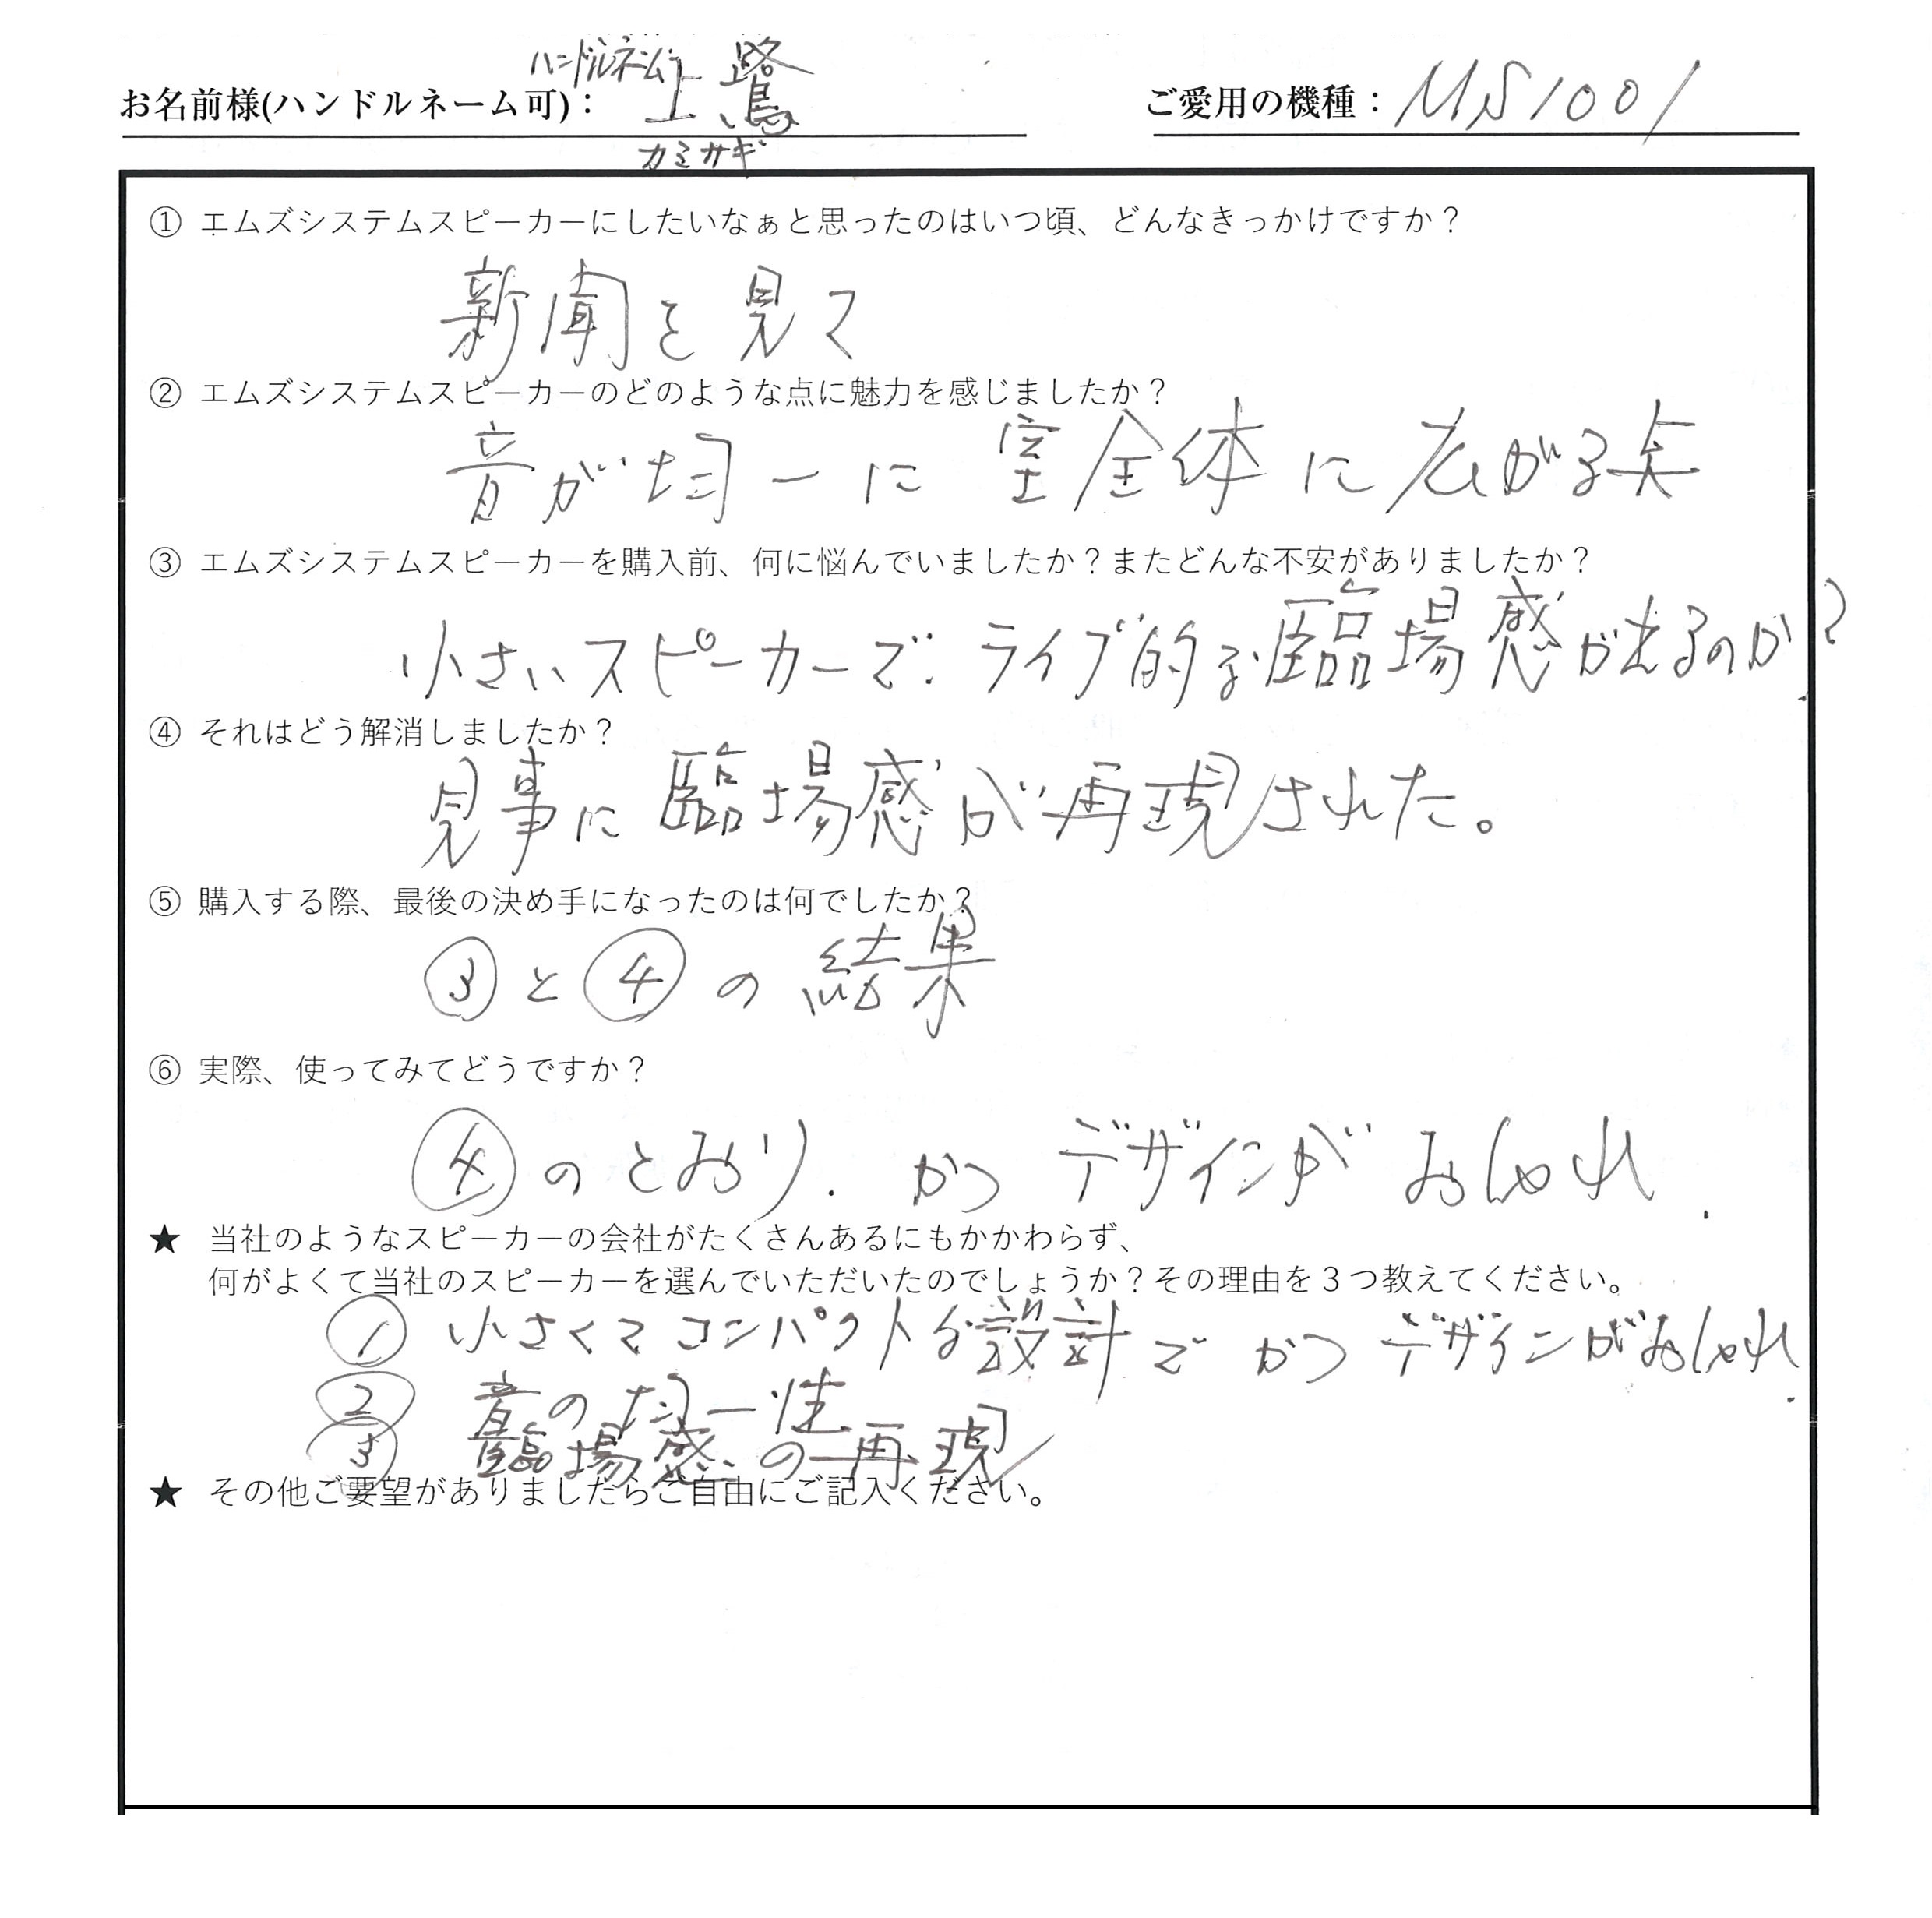 お名前様(ハンドルネーム可)： ハンドルネーム 上鷺 カミサギ
ご愛用の機種：MS1001
① エムズシステムスピーカーにしたいなぁと思ったのはいつ頃、どんなきっかけですか？
新聞を見て
② エムズシステムスピーカーのどのような点に魅力を感じましたか？
音が均一に室全体に広がる点
③ エムズシステムスピーカーを購入前、何に悩んでいましたか？またどんな不安がありましたか？
小さいスピーカーで、ライブ的な臨場感が出るのか？
④ それはどう解消しましたか？
見事に臨場感が再現された。
⑤ 購入する際、最後の決め手になったのは何でしたか？
③と④の結果
⑥ 実際、使ってみてどうですか？
④のとおり．かつデザインがおしゃれ．
★ 当社のようなスピーカーの会社がたくさんあるにもかかわらず、
何がよくて当社のスピーカーを選んでいただいたのでしょうか？その理由を３つ教えてください。
① 小さくてコンパクトな設計でかつデザインがおしゃれ．
② 音の均一性
③ 臨場感の再現
★ その他ご要望がありましたらご自由にご記入ください。